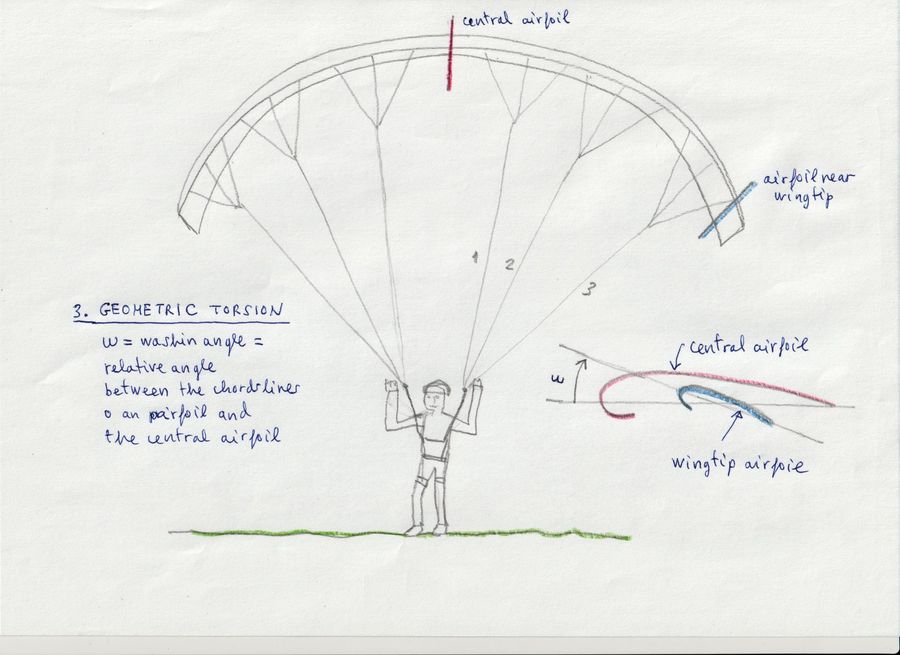 central airfoil
airfoil near
wingtip
1
2
3
3. GEOMETRIC TORSION
w = washin angle =
relative angle
between the chordslines
o an pairfoil and
the central airfoil
central airfoil
w
wingtip airfoie